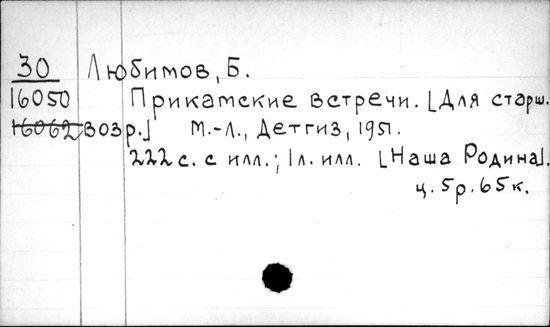 30 Любимов, Б.
16050 Прикамские встречи. [Для старш.
16062 возр.] М.-Л., Детгиз, 1951.
222 с. с илл.; 1 л. илл. [Наша Родина].
ц. 5р. 65к.